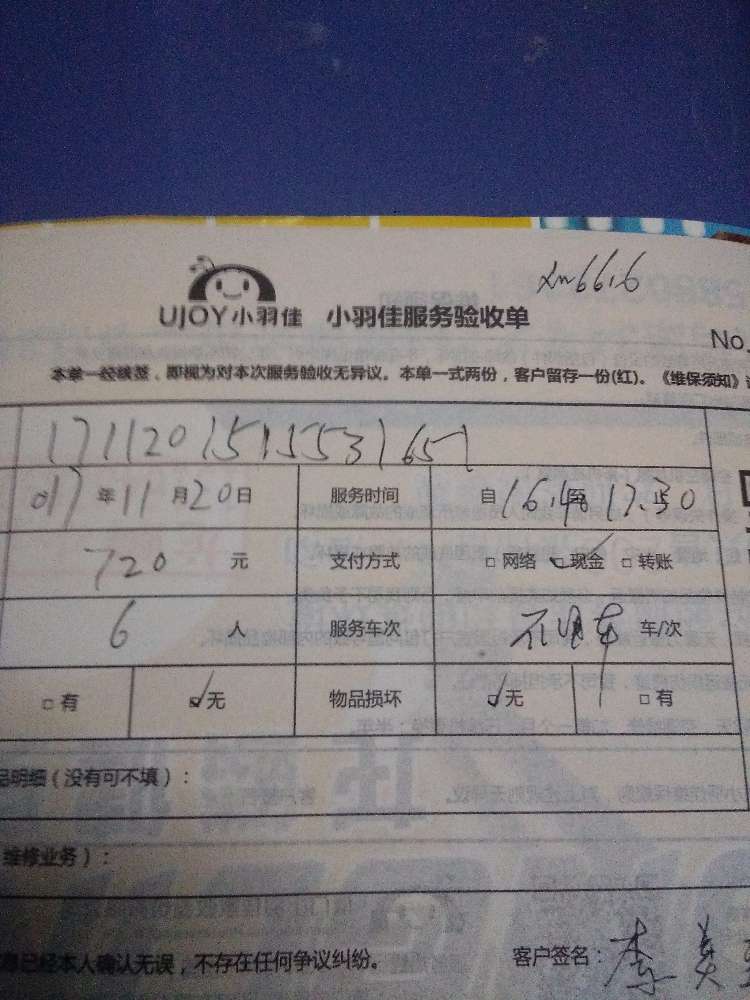 UJOY小羽佳 小羽佳服务验收单
No.
本单一经续签，即视为对本次服务验收无异议。本单一式两份，客户留存一份(红)。《维保须知》
17112015155531651
017年11月20日 服务时间 自16.40至17.30止
720元 支付方式 □网络 ☑现金 □转账
6人 服务车次 不用车 车/次
□有 ☑无 物品损坏 ☑无 □有
品明细（没有可不填）：
维修业务）：
息已经本人确认无误，不存在任何争议纠纷。 客户签名：李美